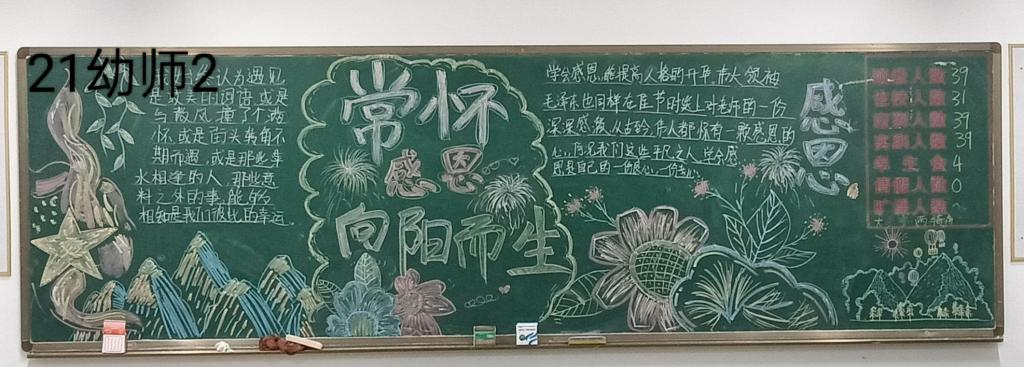 21幼师2
认为遇见
或是
与微风撞了个满
怀,或是街头转角不
期而遇,或是那些萍
水相逢的人,那些意
料之外的事,能够
相知是我们彼此的幸运
常怀
感恩
向阳而生
学会感恩,能提高人格的升华,伟大领袖
毛泽东也同样在佳节时奖上对老师的一份
深深感激,从古到今,伟人都怀有一颗感恩的
心,何况我们这些平凡之人,学会感
恩是自己的一份良心一份孝心
感恩
班级人数 39
住校人数 31
应到人数 39
实到人数 39
4
请假人数 0
旷课人数